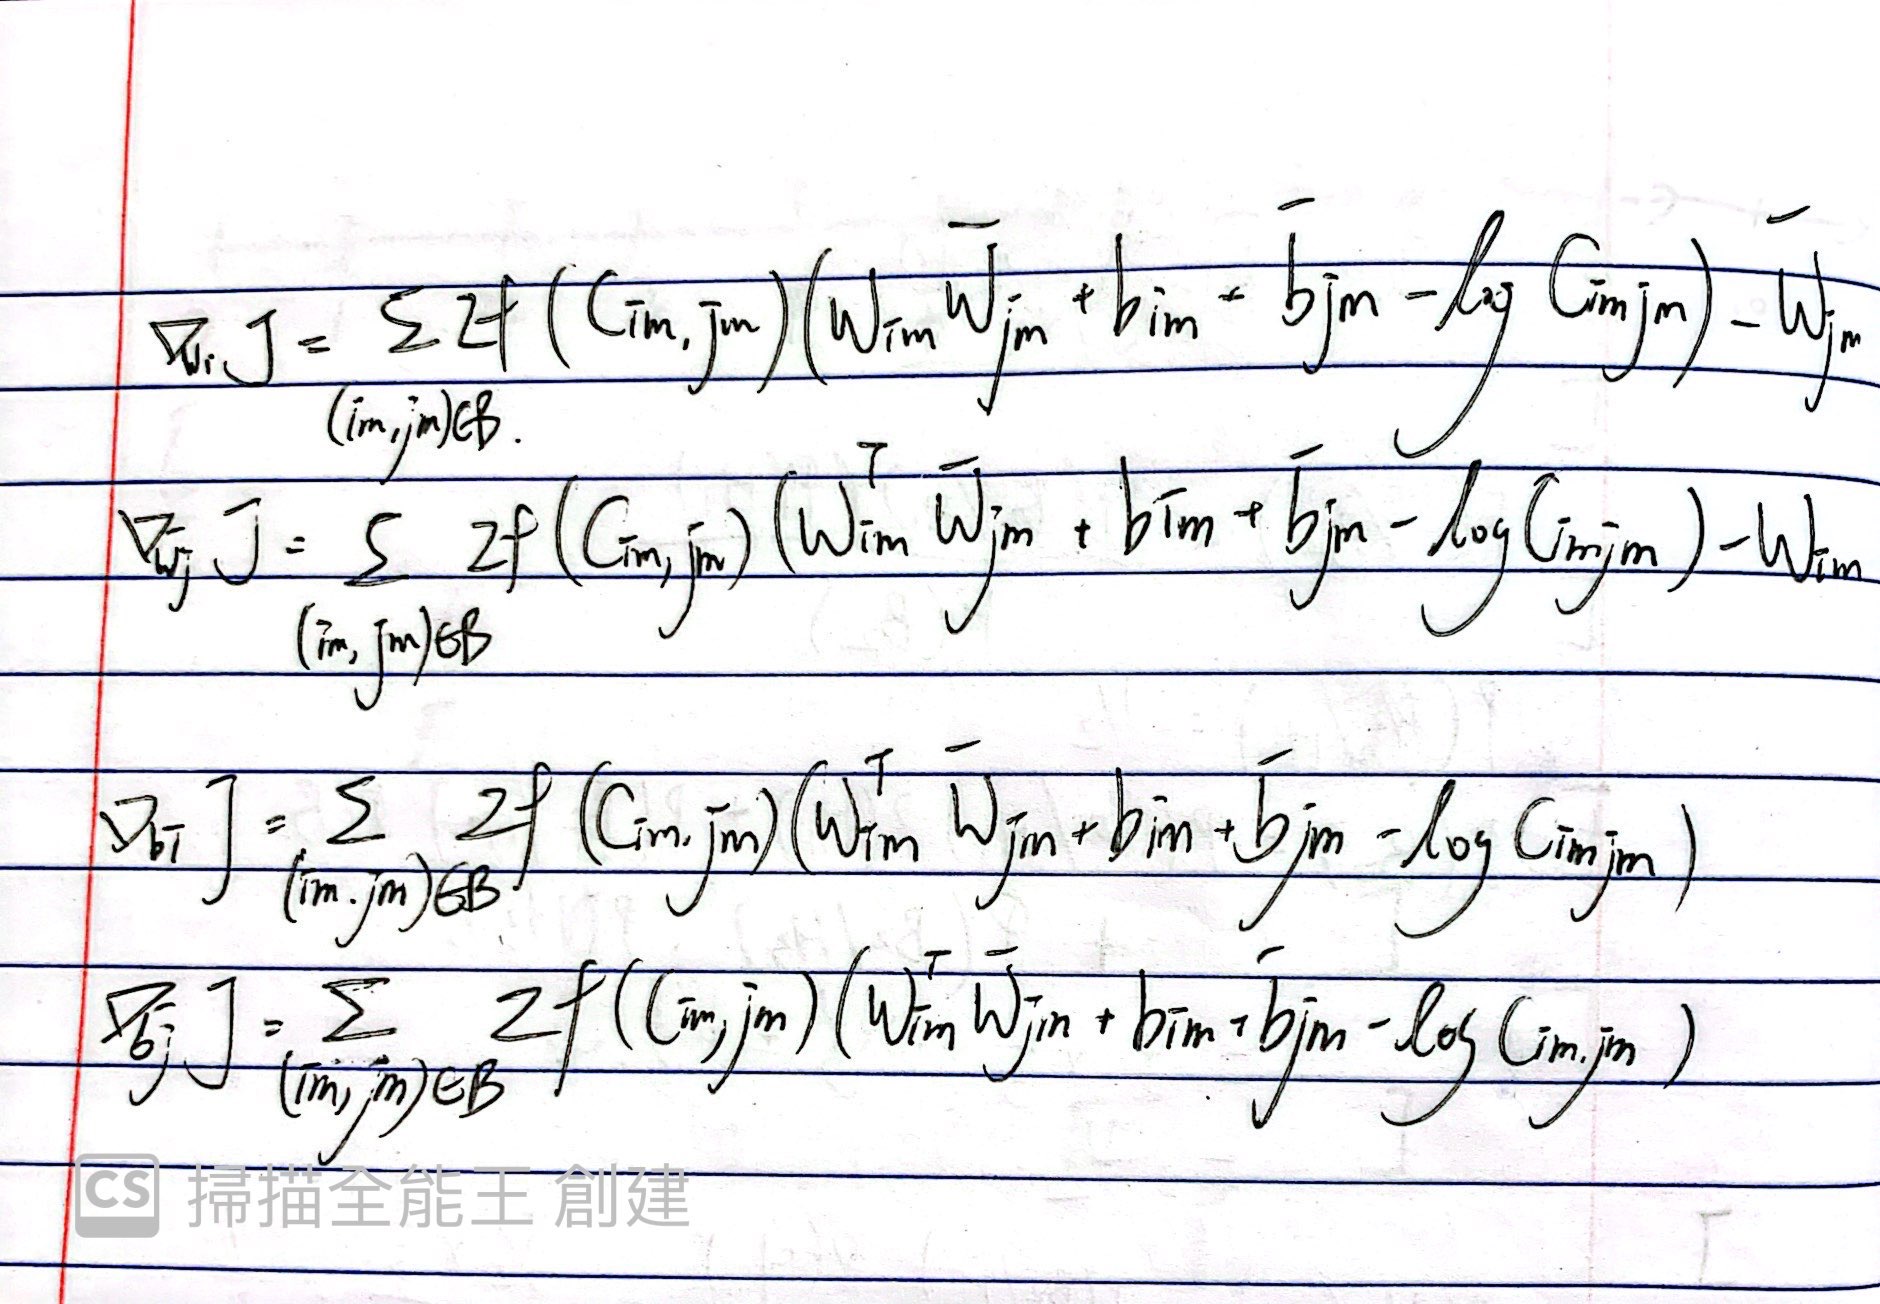 ∇wᵢ J = Σ 2f (C_im, jm) (W_im W̄_jm + b_im + b̄_jm - log C_im jm) - W̄_jm
(im, jm)∈B.
∇w̄ⱼ J = Σ 2f (C_im, jm) (W_im^T W̄_jm + b_im + b̄_jm - log C_im jm) - W_im
(im, jm)∈B
∇bᵢ J = Σ 2f (C_im, jm) (W_im^T W̄_jm + b_im + b̄_jm - log C_im jm)
(im, jm)∈B
∇b̄ⱼ J = Σ 2f (C_im, jm) (W_im^T W̄_jm + b_im + b̄_jm - log C_im, jm)
(im, jm)∈B
CS 掃描全能王 創建